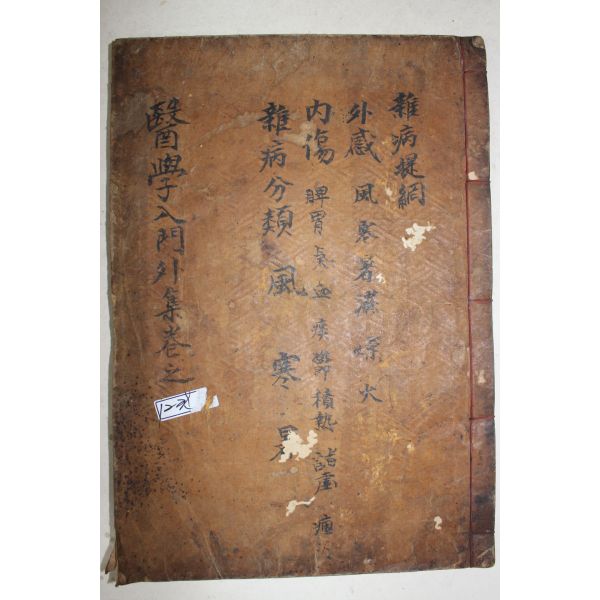 雜病提綱
外感 風寒暑濕燥火
內傷 脾胃氣血痰鬱積熱諸虛
雜病分類 風 寒 暑
醫學入門外集卷之